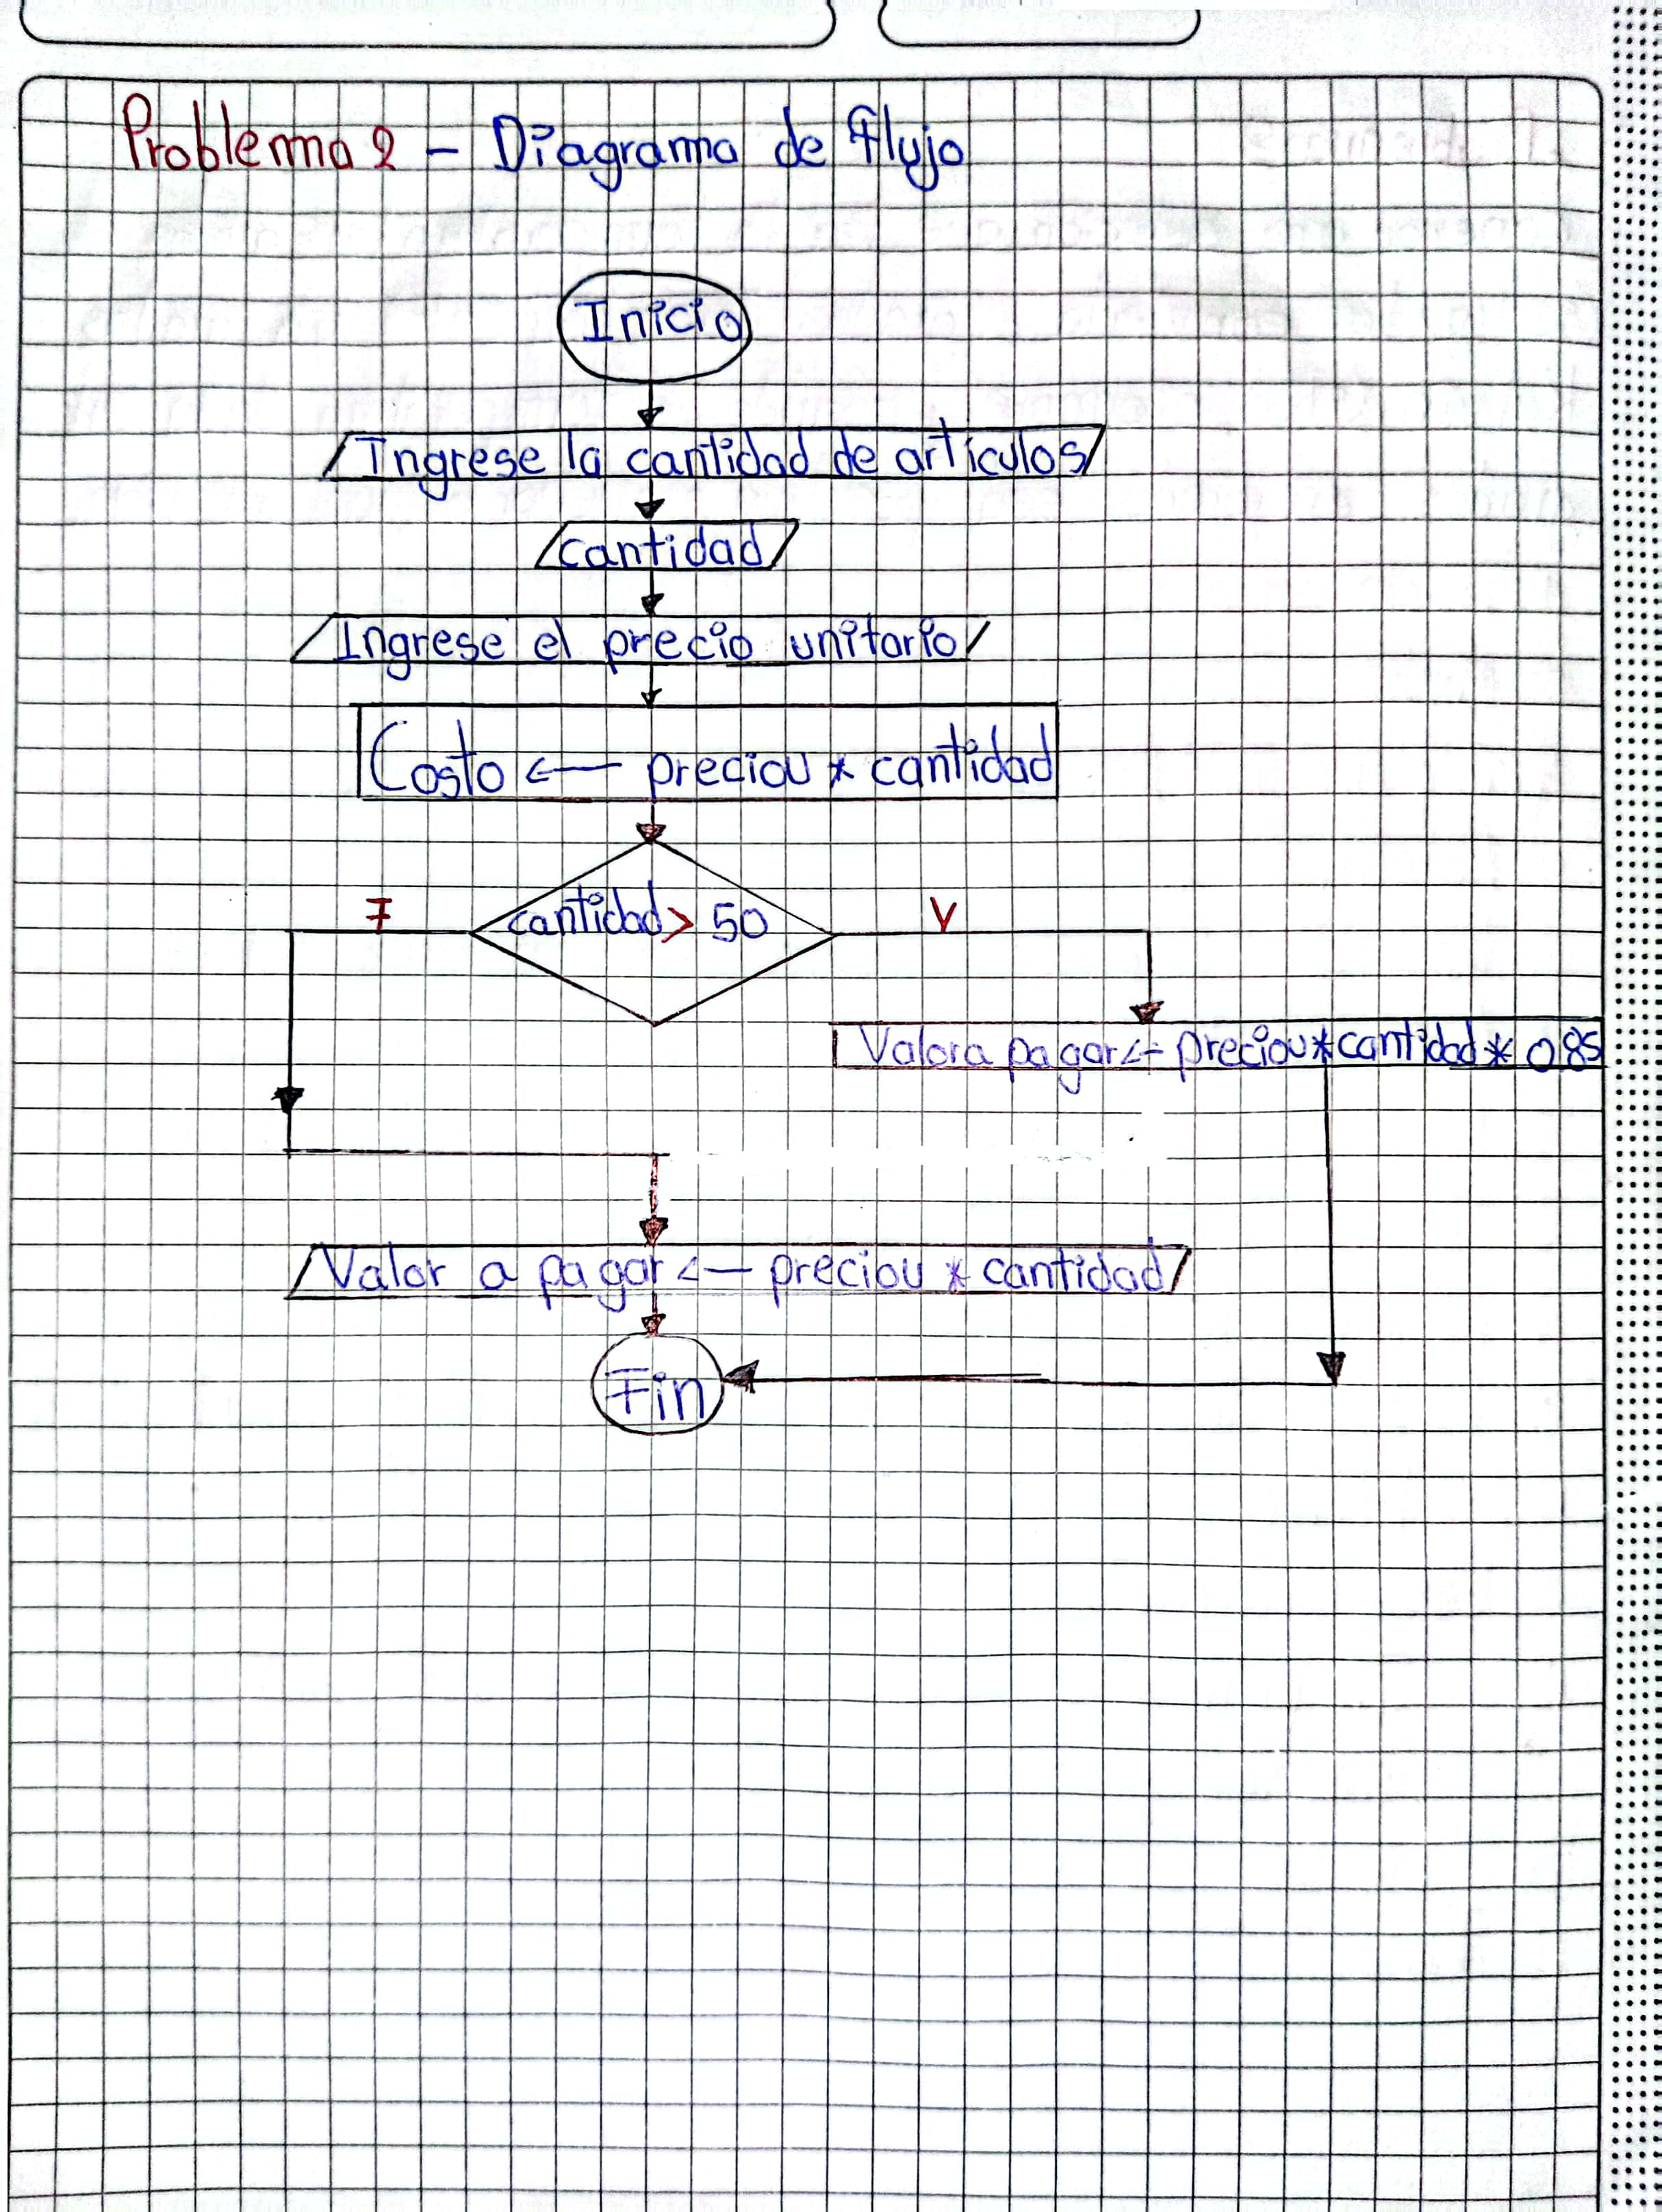 Problema 2 - Diagrama de flujo
Inicio
Ingrese la cantidad de artículos
cantidad
Ingrese el precio unitario
Costo ← preciou * cantidad
cantidad > 50
F
V
Valora pagar ← preciou * cantidad * 0.85
Valor a pagar ← preciou * cantidad
Fin